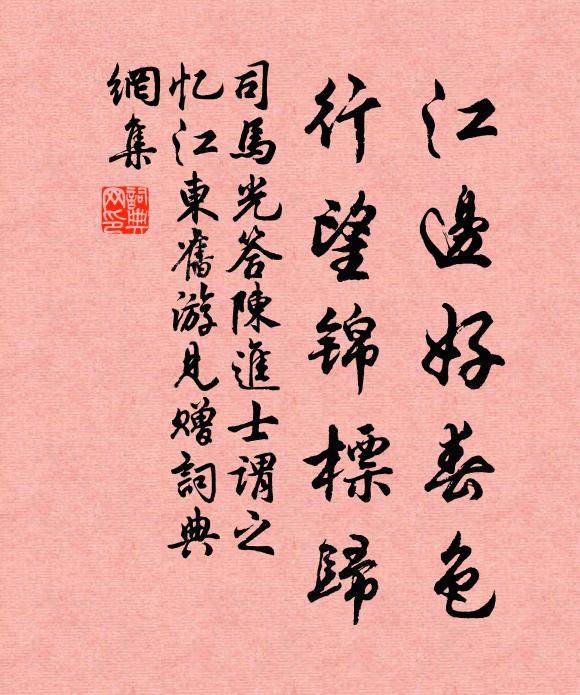 江邊好春色
行望锦標歸
司馬光答陳進士謂之
忆江東舊游見赠詞典
網集
詞典
网印